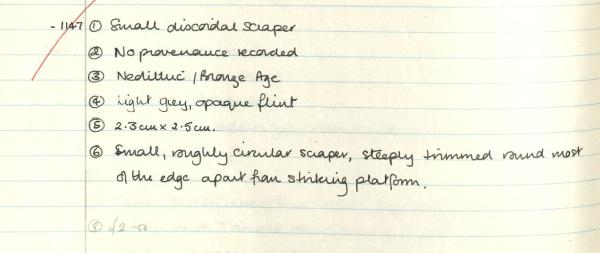 - 1147 ① Small discoidal scraper
② No provenance recorded
③ Neolithic / Bronze Age
④ Light grey, opaque flint
⑤ 2.3cm x 2.5cm.
⑥ Small, roughly circular scraper, steeply trimmed round most
of the edge apart from striking platform.
⑧ £2-50